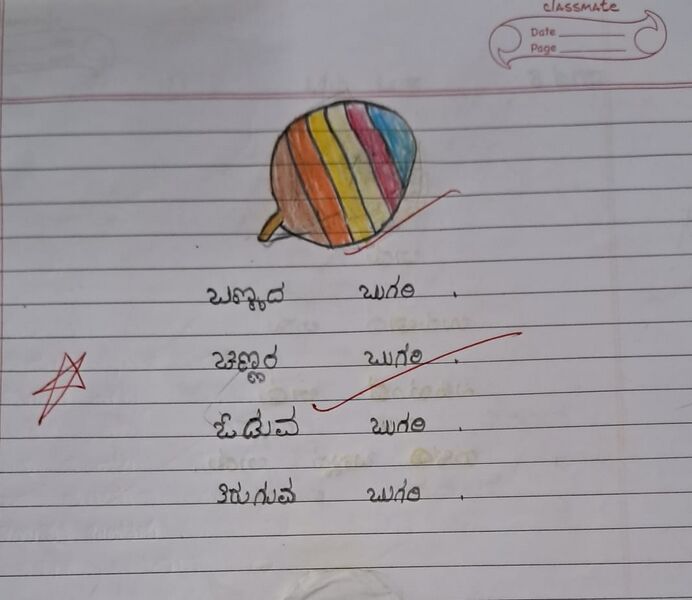 classmate
Date
Page
ಬಣ್ಣದ ಬುಗರಿ .
ಚಿಣ್ಣರ ಬುಗರಿ .
ಓಡುವ ಬುಗರಿ .
ತಿರುಗುವ ಬುಗರಿ .